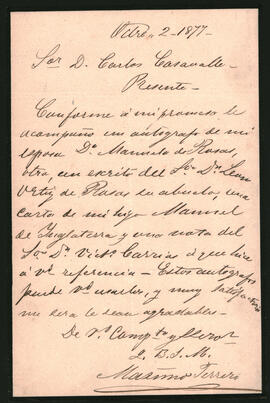 Octre. 2-1877-
Sor. D. Carlos Casavalle
Presente-
Conforme á mi promesa le
acompaño un autografo de mi
esposa Da. Manuela de Rosas,
otro, un escrito del Sor. Dn. Leon
Ortiz de Rosas su abuelo, una
carta de mi hijo Manuel
de Inglaterra y una nota del
Sor. Dr. á que hice
á V. referencia - Estos autografos
puede Vd. usarlos, y muy
me será le sean agradables-
De V.
Q. B. S. M.
Maximo Terrero